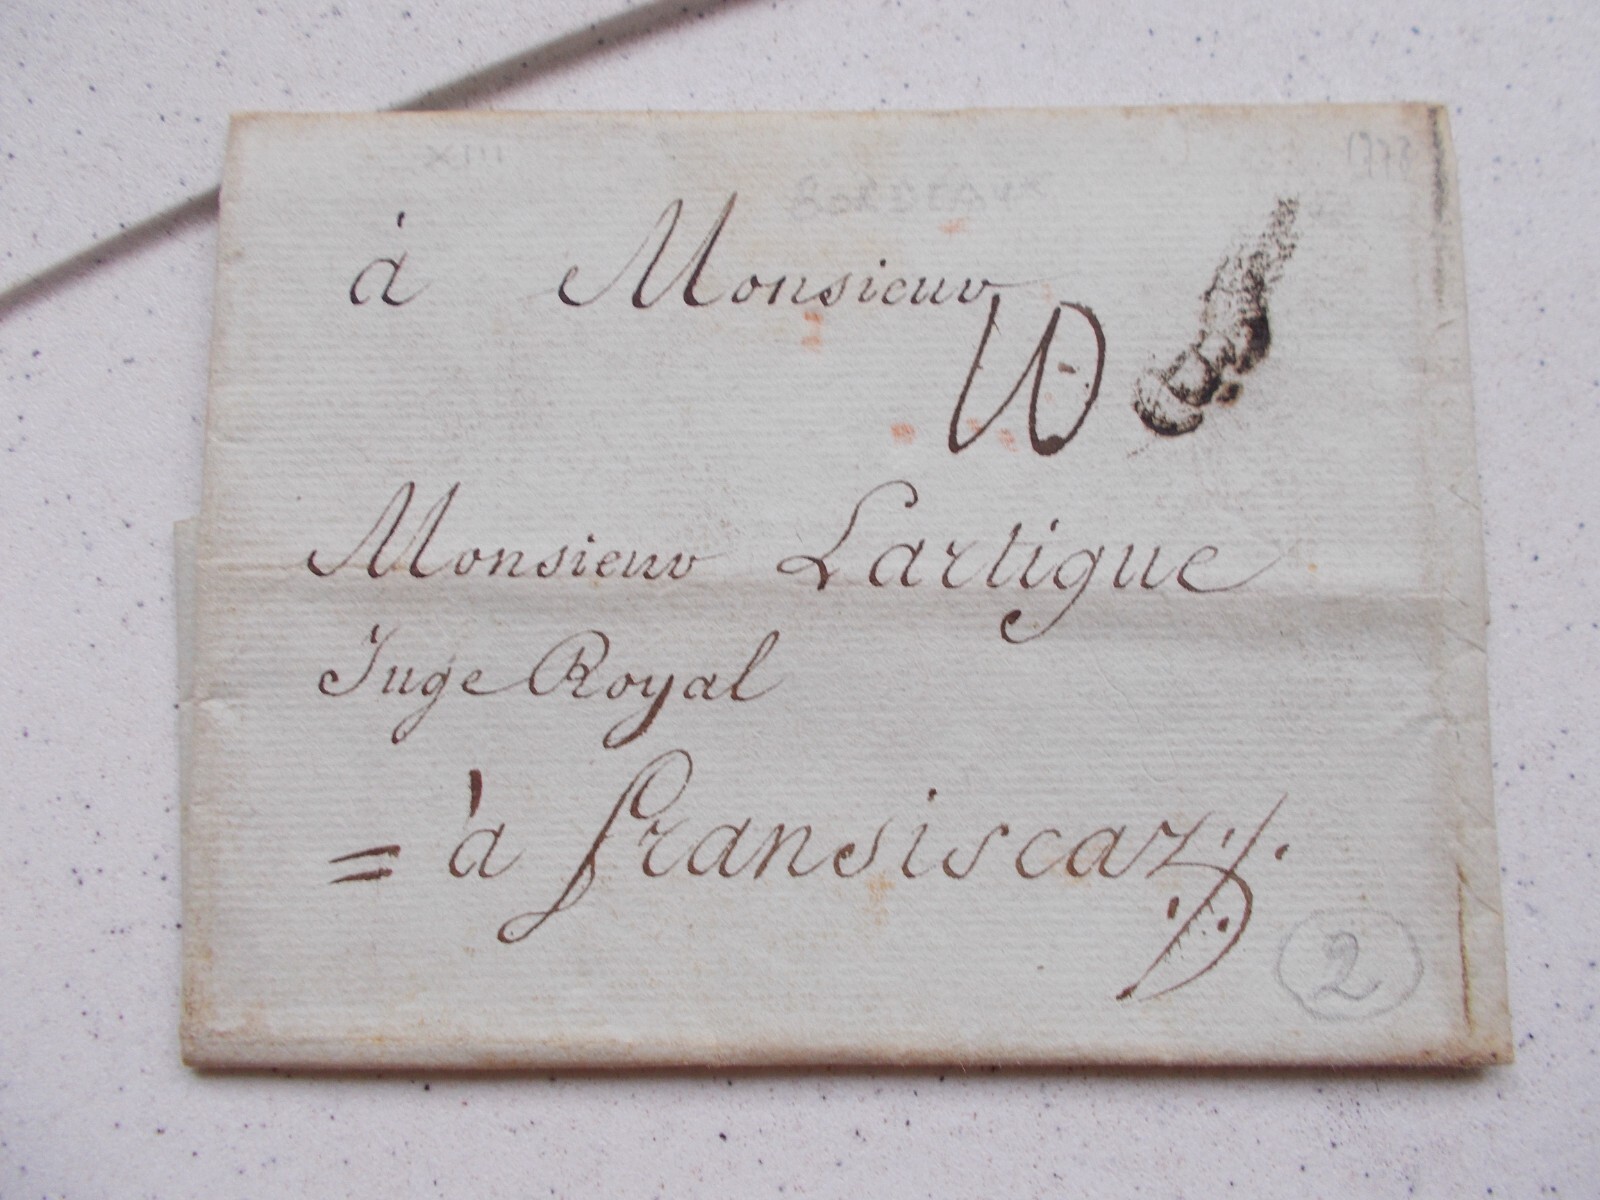 XIII
1778
BORDEAUX
à Monsieur
10
Monsieur Lartigue
Juge Royal
= à fransiscas
2